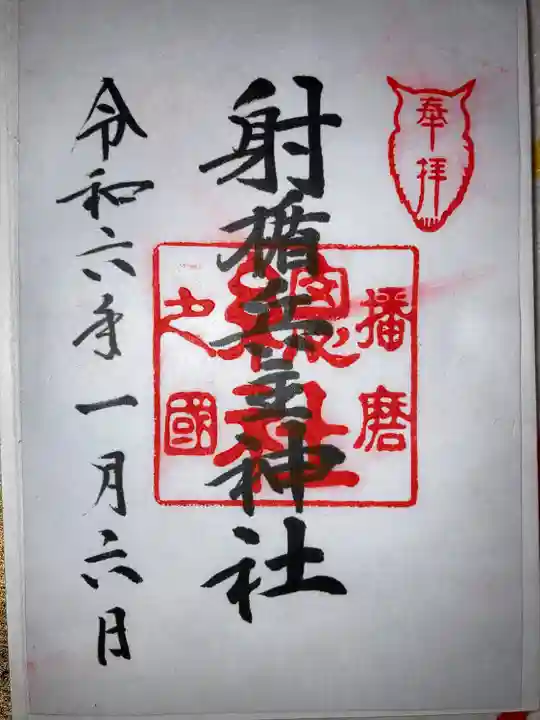 奉拝
射楯兵主神社
播磨
総社
之國
令和六年一月六日